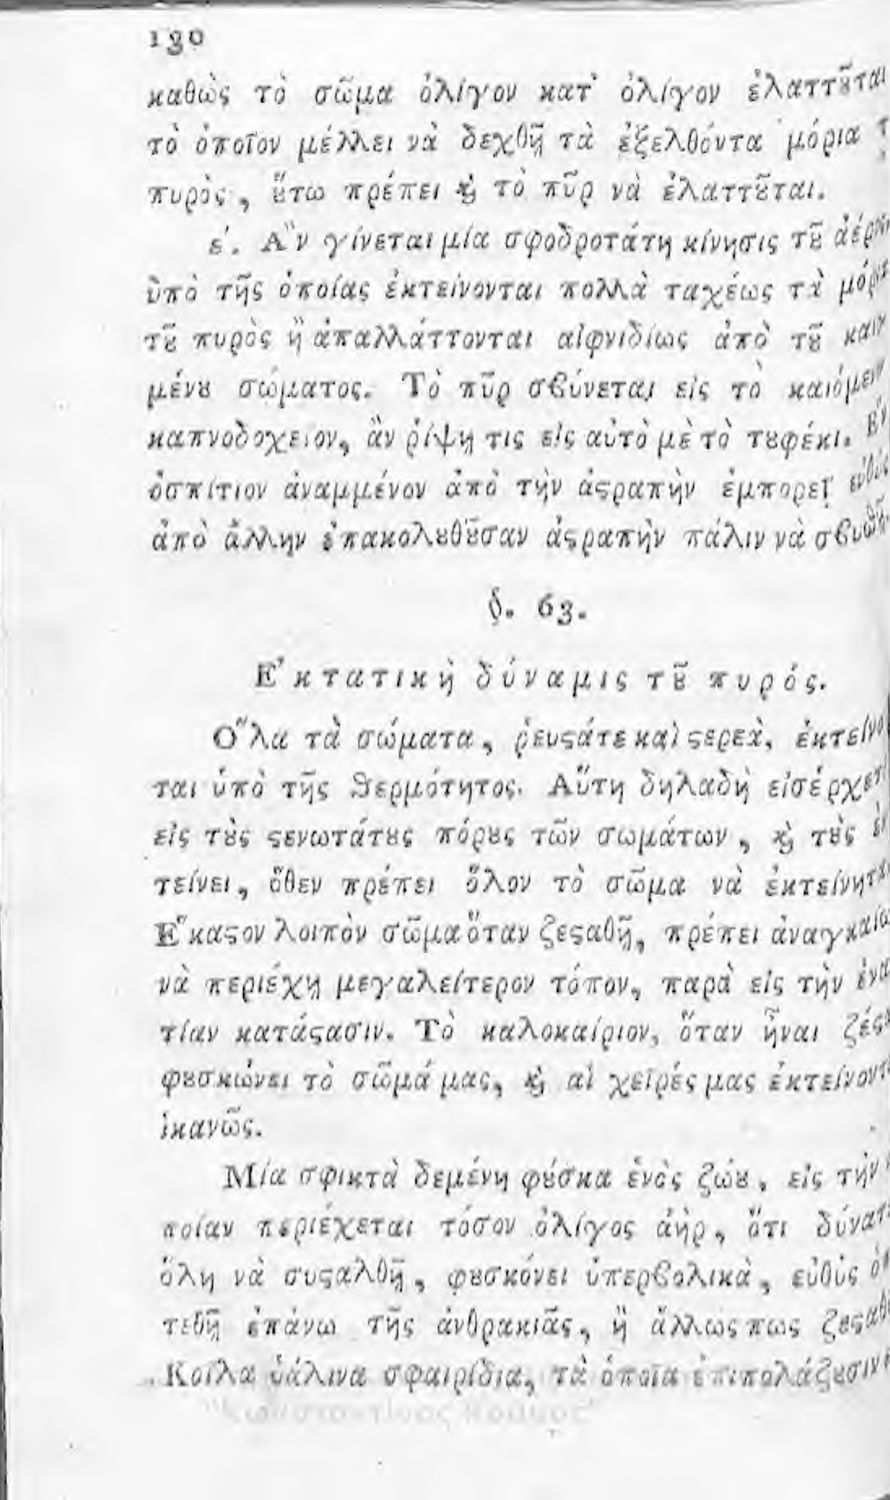 130
καθὼς τὸ σῶμα ὀλίγον κατ' ὀλίγον ἐλαττȣ͂ται
τὸ ὁποῖον μέλλει νὰ δεχθῇ τὰ ἐξελθόντα μόρια
πυρὸς, ȣ̔́τω πρέπει ϗ̀ τὸ πῦρ νὰ ἐλαττȣ͂ται.
ε'. Α῎ν γίνεται μία σφοδροτάτη κίνησις τȣ͂
ὑπὸ τῆς ὁποίας ἐκτείνονται πολλὰ ταχέως τὰ μόρια
τȣ͂ πυρὸς ἢ ἀπαλλάττονται αἰφνιδίως ἀπὸ τȣ͂ καιο
μένȣ σώματος. Τὸ πῦρ σβύνεται εἰς τὸ
καπνοδοχεῖον, ἂν ῥίψῃ τις εἰς αὐτὸ μὲ τὸ τȣφέκι.
ὁσπίτιον ἀναμμένον ἀπὸ τὴν ἀϛραπὴν ἐμπορεῖ εὐθὺς
ἀπὸ ἄλλην ἐπακολȣθȣ͂σαν ἀϛραπὴν πάλιν νὰ σβυσθῇ
§. 63.
Ε᾿κτατικὴ δύναμις τȣ͂ πυρός.
Ο῞λα τὰ σώματα, ῥευϛάτε καὶ ϛερεὰ, ἐκτείνον
ται ὑπὸ τῆς θερμότητος. Αὕτη δηλαδὴ εἰσέρχετ
εἰς τȣ̀ς ϛενωτάτȣς πόρȣς τῶν σωμάτων, ϗ̀ τȣ̀ς
τείνει, ὅθεν πρέπει ὅλον τὸ σῶμα νὰ ἐκτείνηται
Ε῞καϛον λοιπὸν σῶμα ὅταν ζεϛαθῇ, πρέπει ἀναγκαίω
νὰ περιέχῃ μεγαλείτερον τόπον, παρὰ εἰς τὴν ἐναν
τίαν κατάϛασιν. Τὸ καλοκαίριον, ὅταν ἦναι ζέϛη
φȣσκώνει τὸ σῶμά μας, ϗ̀ αἱ χεῖρές μας ἐκτείνοντ
ἱκανῶς.
Μία σφικτὰ δεμένη φȣ́σκα ἑνὸς ζώȣ, εἰς τὴν
ποίαν περιέχεται τόσον ὀλίγος ἀὴρ, ὅτι δύνατ
ὅλη νὰ συϛαλθῇ, φȣσκόνει ὑπερβολικὰ, εὐθὺς
τεθῇ ἐπάνω τῆς ἀνθρακιᾶς, ἢ ἄλλως πως ζεϛαθῇ
Κοῖλα ὑάλινα σφαιρίδια, τὰ ὁποῖα ἐπιπολάζȣσιν